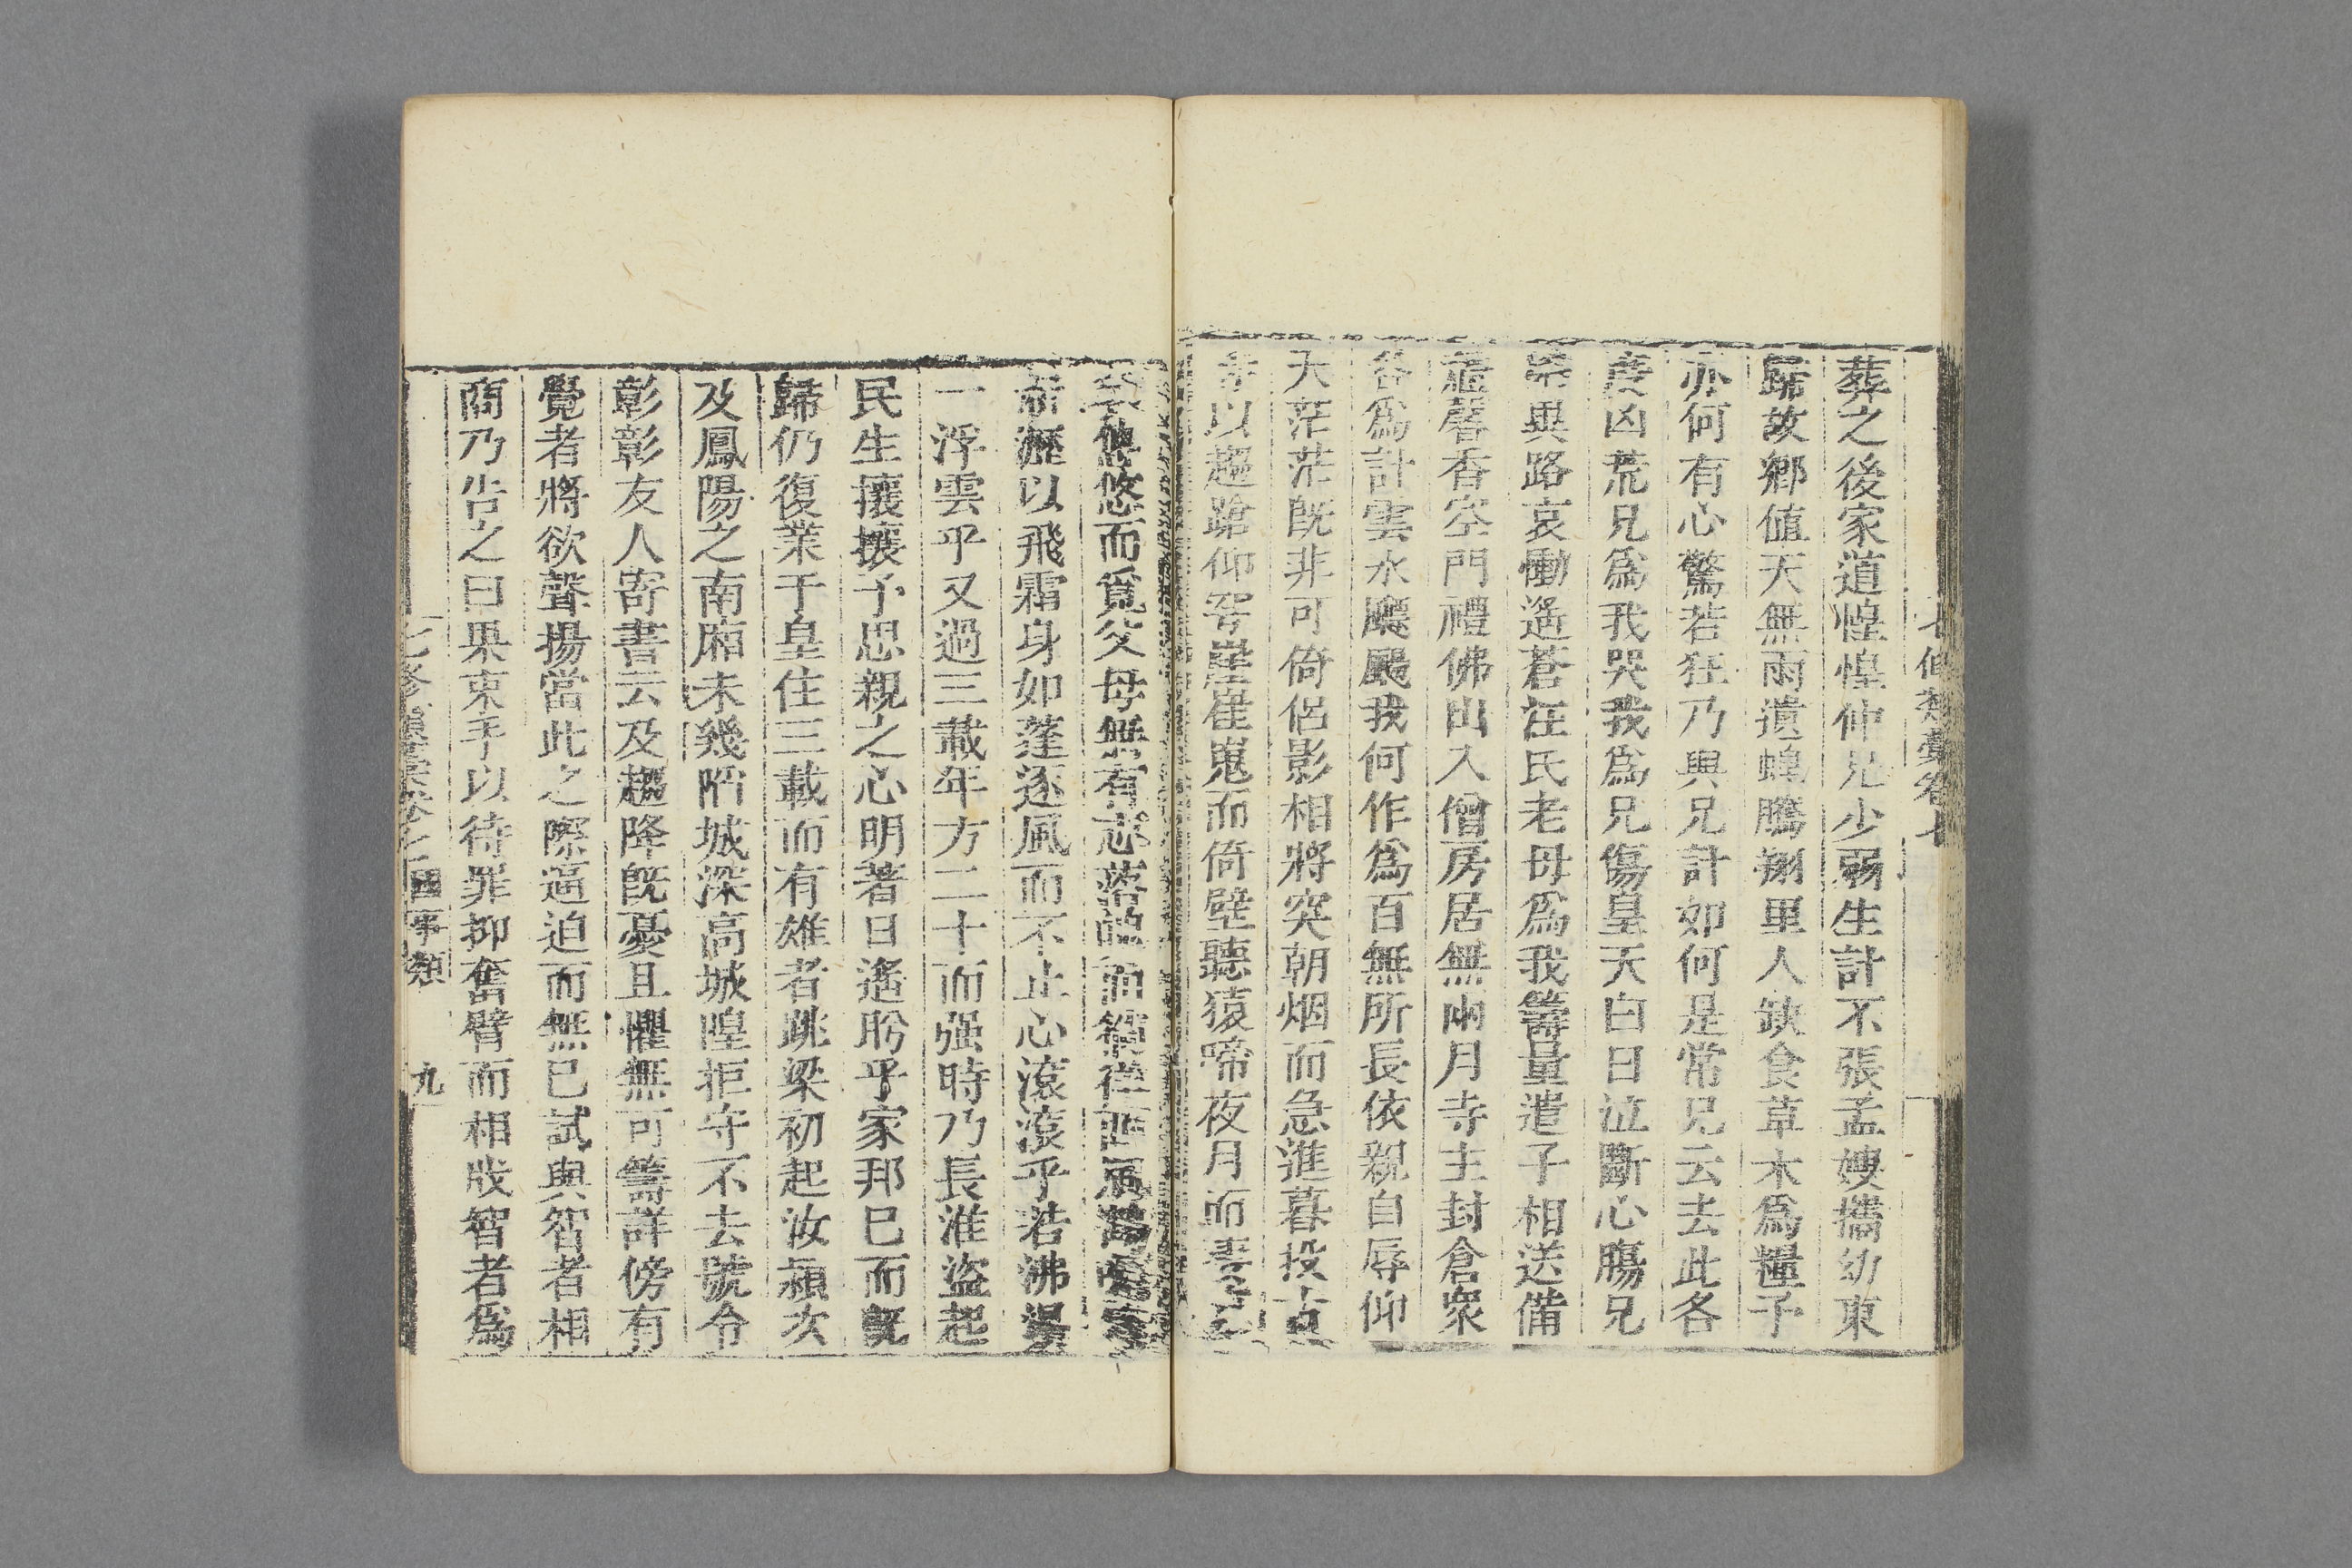 七修類藁卷七
葬之後家道惶惶仲兄少弱生計不張孟嫂攜幼東
歸故鄉值天無雨遺蝗騰翔里人缺食草木爲糧予
亦何有心驚若狂乃與兄計如何是常兄云去此各
度凶荒兄爲我哭我爲兄傷皇天白日泣斷心腸兄
弟異路哀慟遙蒼汪氏老母爲我籌量遣子相送備
禮馨香空門禮佛出入僧房居無兩月寺主封倉衆
各爲計雲水飄颺我何作爲百無所長依親自辱仰
天茫茫既非可倚侶影相將突朝烟而急進暮投古
寺以趨蹌仰穹崖崔嵬而倚壁聽猿啼夜月而凄
悠悠而覓父母無有志落魄而
以飛霜身如蓬逐風而不止心滾滾乎若沸湯
一浮雲乎又過三載年方二十而强時乃長淮盜起
民生攘攘予思親之心明著日遙盻乎家邦已而既
歸仍復業于皇住三載而有雄者跳梁初起汝潁次
及鳳陽之南廂未幾陷城深高城隍拒守不去號令
彰彰友人寄書云及趨降既憂且懼無可籌詳傍有
覺者將欲聲揚當此之際逼迫而無已試與智者相
商乃告之曰果束手以待罪抑奮臂而相戕智者爲
七修類藁卷七 國事類 九